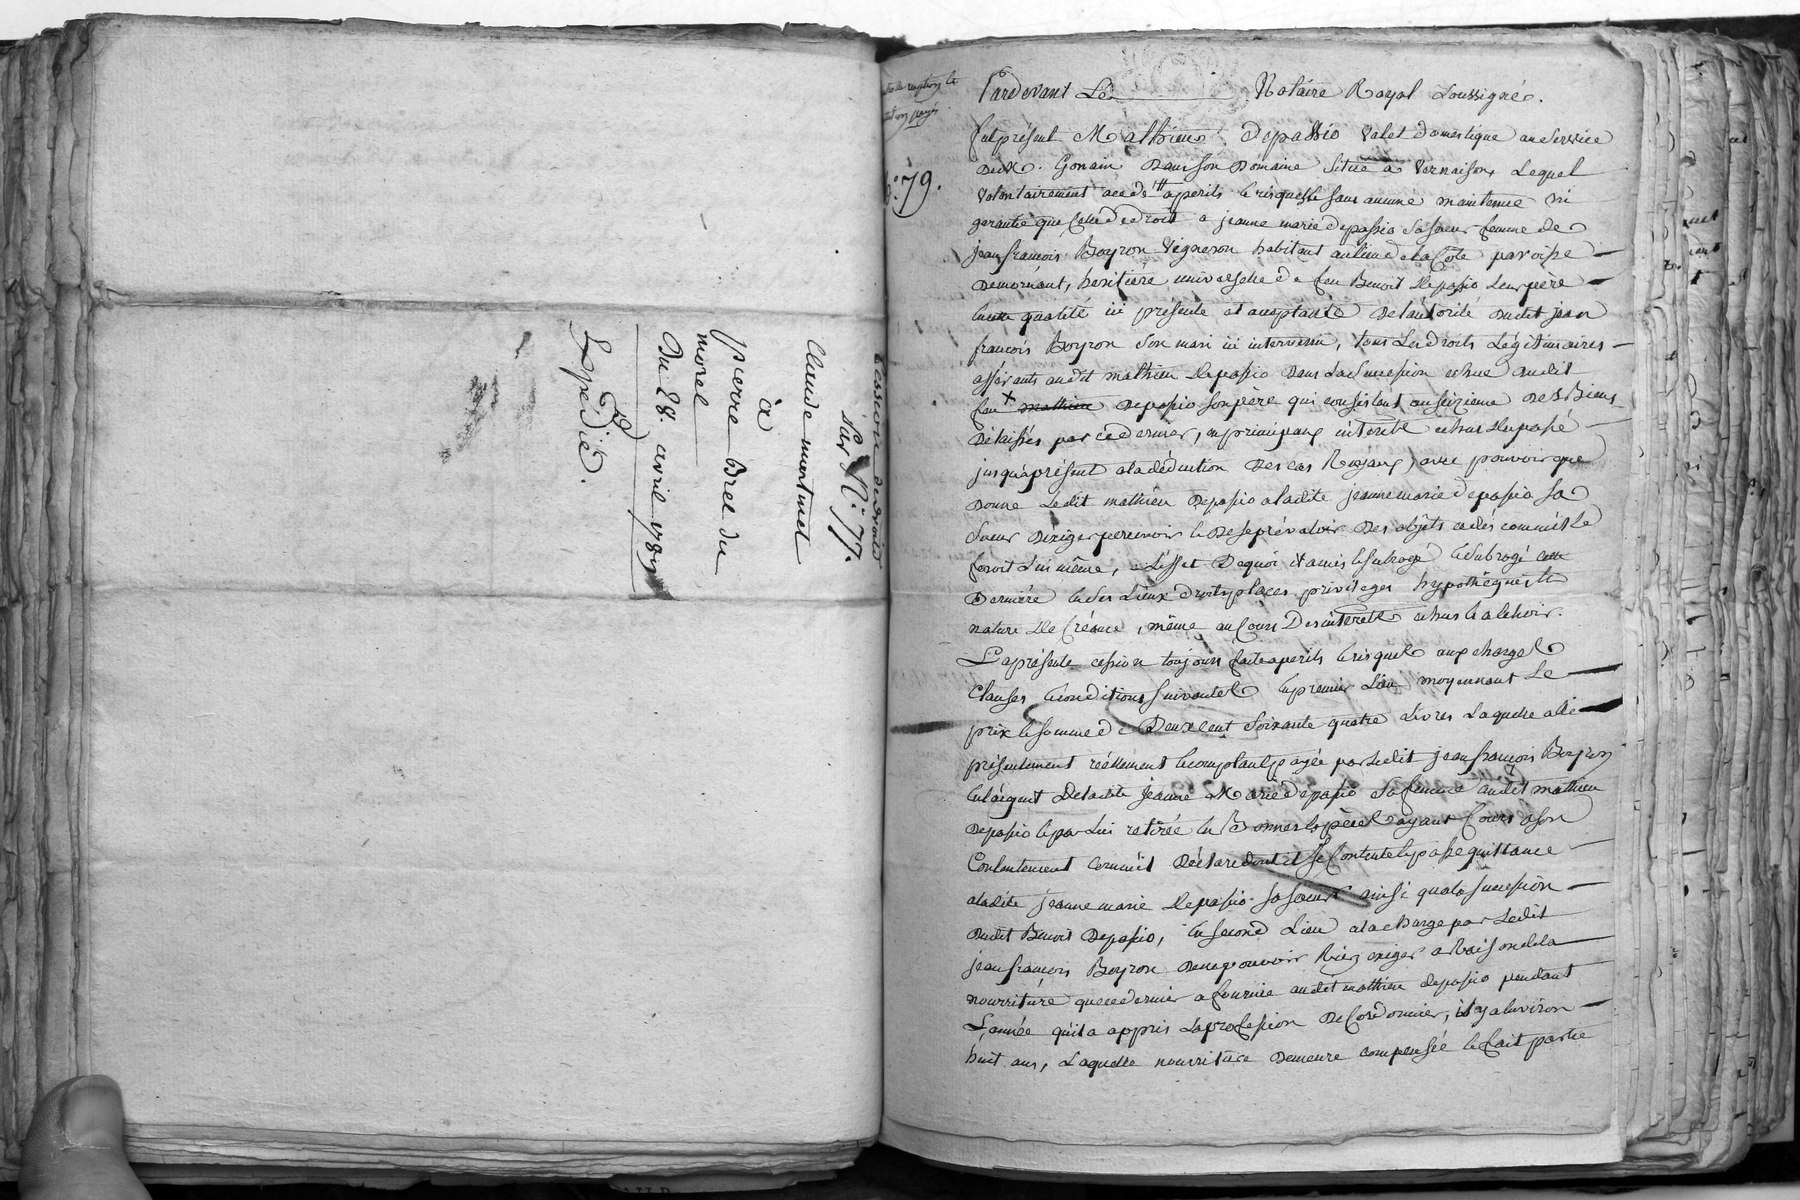 Cession de droits
Sur N.° 77.
Claude montmet
à
pierre Brel du
morel
Du 28. avril 178
Expédié.
N.° 79.
Pardevant Le Notaire Royal Soussigné.
fut présent Mathieu Depassio Valet domestique au Service
De M. Gonain Dans son Domaine Situé a Vernaison, Lequel
Volontairement cede a perils & risques & sans aucune maintenue ni
garantie que Celle de droit a jeanne marie depassio Sa sœur femme de
jean françois Boyron Vigneron habitant au lieu de la Cote paroisse
De mornant, heritiere universelle de feu Benoit Depassio Leur père
en cette qualité ici présente et acceptante De l'autorité dudit jean
françois Boyron Son mari ici intervenu, tous Les droits Légitimaires
afferants audit mathieu Depassio Dans La Succession echue dudit
feu mathieu Depassio Son père qui consistent au seizieme Des Biens
Délaissés par ce dernier, en principaux intérêts echus Du passé
jusqu'aprésent a la déduction Des cas Royaux, avec pouvoir que
Donne Ledit mathieu Depassio a ladite jeanne marie depassio Sa
Sœur D'exiger percevoir & De se prévaloir Des objets cedés comme il Le
feroit Lui même, a L'effet De quoi il a mis & subrogé & Subrogé cette
Derniére en Ses Lieux droits places privileges hypothéques &
nature De Créance, même au Cours Des intérêts echus & a echoir.
La présente cession toujours faite a perils & risques aux charges
Clauses & Conditions Suivantes En premier Lieu moyennant Le
prix & somme de Deux Cent Soixante quatre Livres Laquelle a été
présentement réellement & comptant payée par Ledit jean françois Boyron
en l'argent De ladite Jeanne Marie depassio Sa femme audit mathieu
Depassio & par Lui retirée en Bonnes Espèces ayant Cours a son
Contentement comme il Déclare dont il Se Contente & passe quittance
a ladite jeanne marie Depassio Sa sœur ainsi qu'a la succession
dudit Benoit Depassio, En second Lieu a la charge par Ledit
jean françois Boyron De ne pouvoir Rien exiger a Raison de la
nourriture que ce dernier a fournie audit mathieu depassio pendant
L'année qu'il a appris La profession De Cordonnier, il y a environ
huit ans, Laquelle nourriture Demeure compensée & fait partie